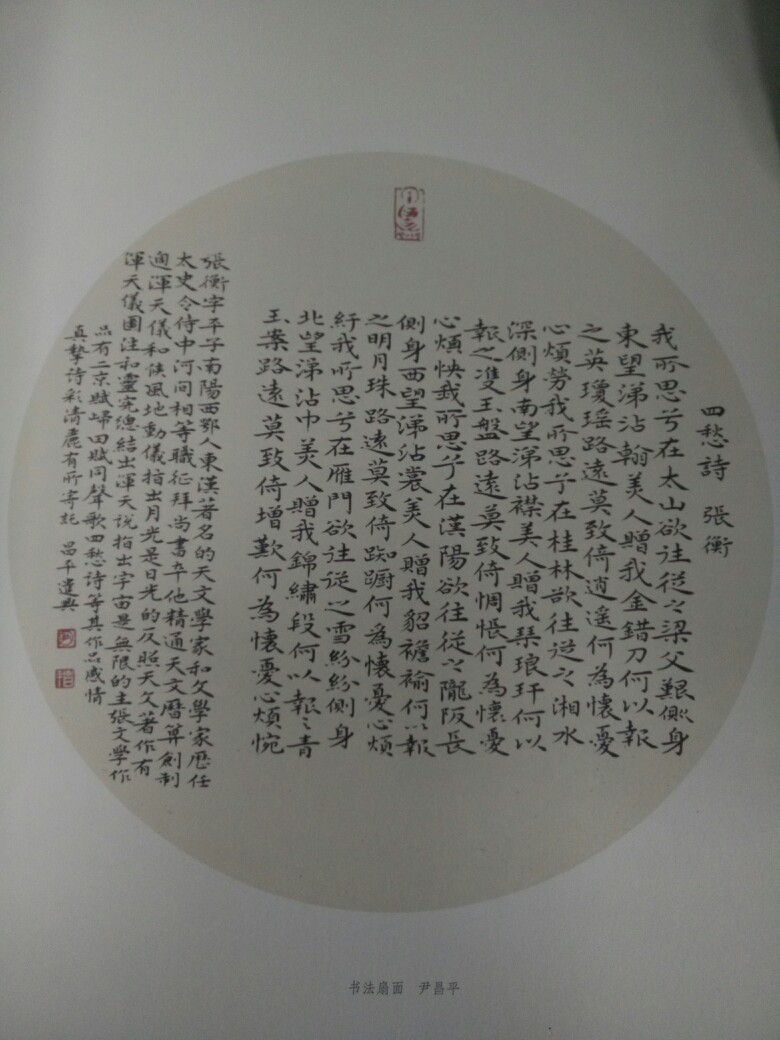 四愁詩 張衡
我所思兮在太山欲往從之梁父艱側身
東望涕沾翰美人贈我金錯刀何以報
之英瓊瑤路遠莫致倚逍遥何為懷憂
心煩勞我所思兮在桂林欲往從之湘水
深側身南望涕沾襟美人贈我琹琅玕何以
報之雙玉盤路遠莫致倚惆悵何為懷憂
心煩怏我所思兮在漢陽欲往從之隴阪長
側身西望涕沾裳美人贈我貂襜褕何以報
之明月珠路遠莫致倚踟躕何為懷憂心煩
紆我所思兮在雁門欲往從之雪紛紛側身
北望涕沾巾美人贈我錦繡段何以報之青
玉案路遠莫致倚增歎何為懷憂心煩惋
張衡字平子南陽西鄂人東漢著名的天文學家和文學家歷任
太史令侍中河间相等職征拜尚書卒他精通天文曆算創制
渾天儀和候風地動儀指出月光是日光的反照天文著作有
渾天儀圖注和靈宪總结出渾天说指出宇宙是無限的主張文學作
品有二京赋歸田赋同聲歌四愁詩等其作品感情
真摯詩彩清麗有所寄託 昌平遣興
书法扇面 尹昌平